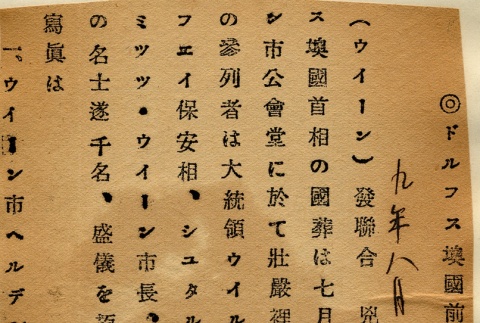 ◎ドルフス墺國前
九年八月
(ウイーン)發聯合 兇
ス墺國首相の國葬は七月
ン市公會堂に於て壯嚴裡
の參列者は大統領ウイル
フエイ保安相、シユタル
ミツツ・ウイーン市長、
の名士遂千名、盛儀を
寫眞は
一、ウイーン市ヘルデ